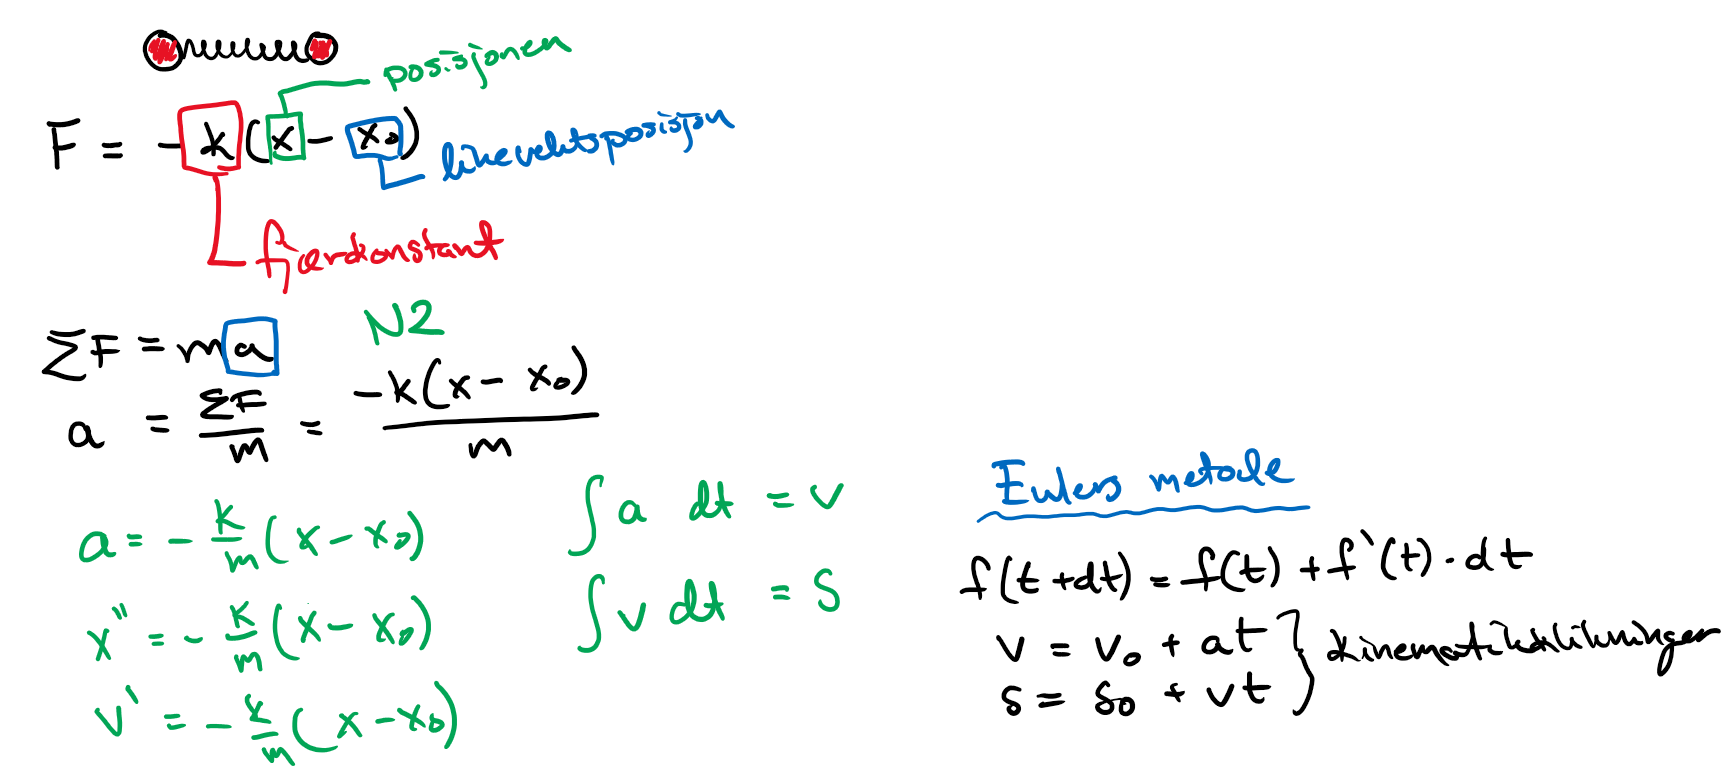 posisjonen
F = -k(x - x₀)
likevektsposisjon
fjærkonstant
ΣF = ma
N2
a = ΣF/m = -k(x - x₀)/m
a = - k/m (x - x₀)
x'' = - k/m (x - x₀)
v' = - k/m (x - x₀)
∫ a dt = v
∫ v dt = s
Eulers metode
f(t + dt) = f(t) + f'(t) · dt
v = v₀ + at
s = s₀ + vt